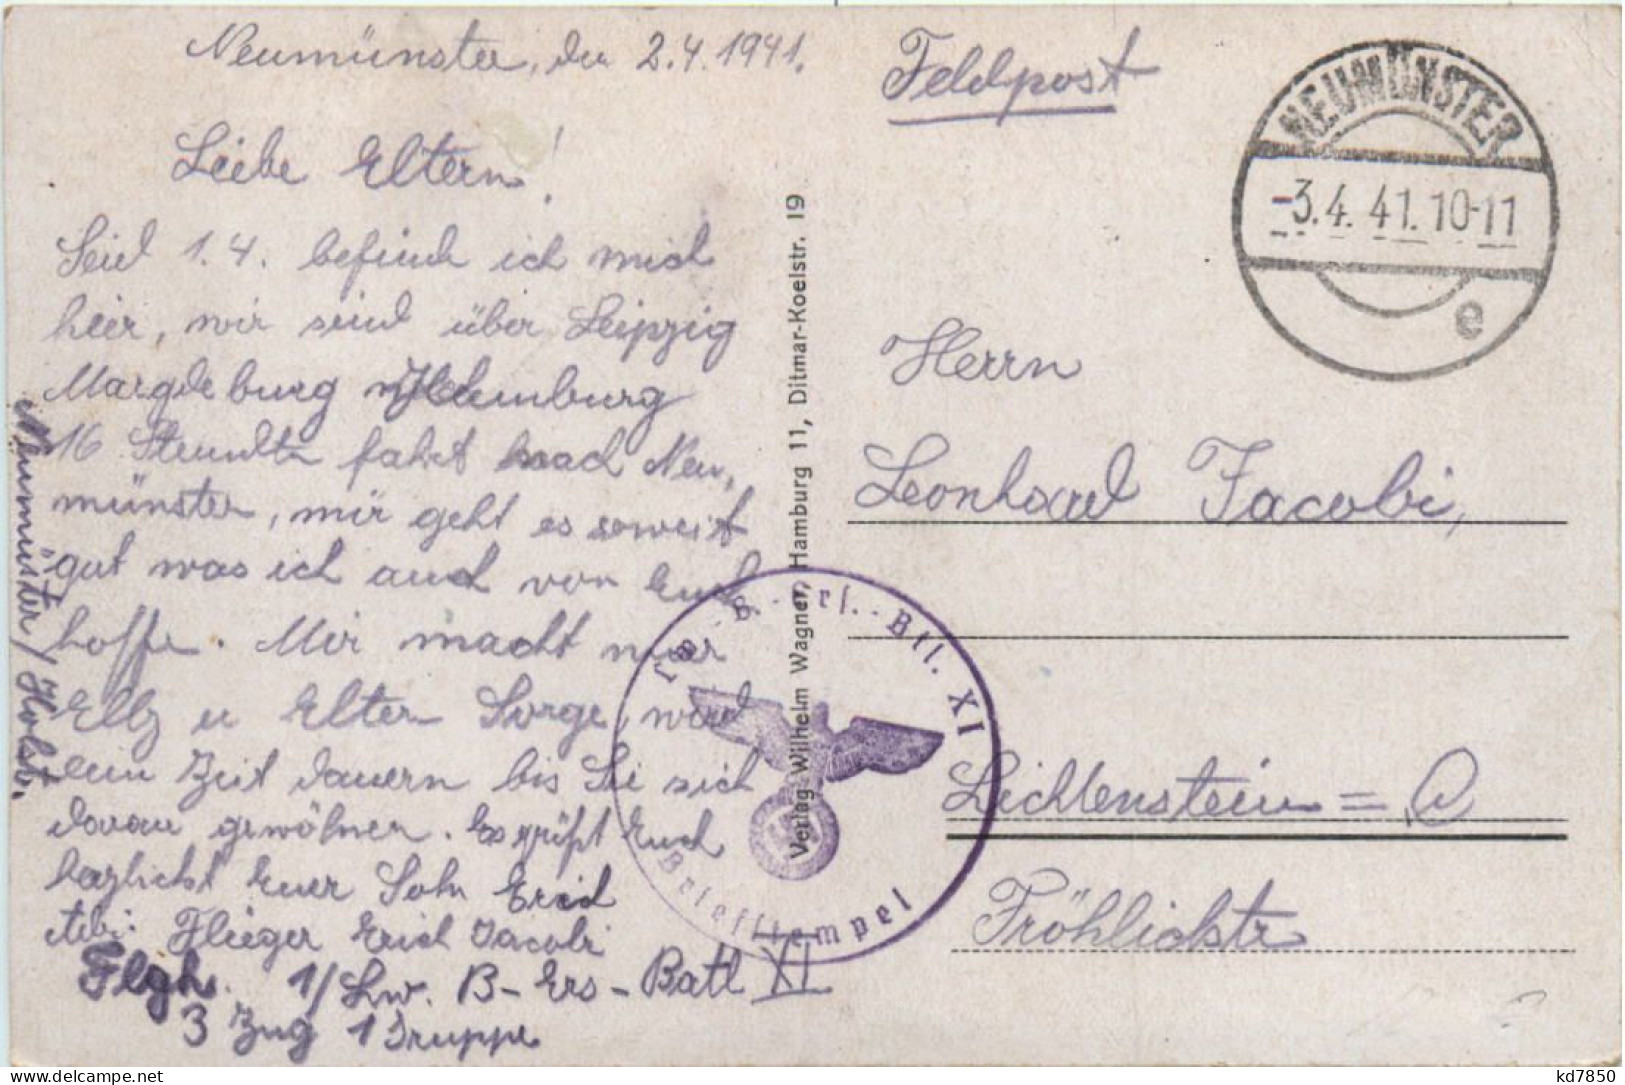 Neumünster, den 2.4.1941.
Liebe Eltern!
Seid 1.4. befinde ich mich
hier, wir sind über Leipzig
Margdeburg Hamburg
16 Stunden fahrt nach Neu,
münster, mir geht es soweit
gut was ich auch von Euch
hoffe. Mir macht nur
Elly u Eltern Sorge, wird
ein Zeit dauern bis Sie sich
davon gewöhnen. Es grüßt Euch
herzlichst Euer Sohn Erich
Flieger Erich Jacobi
Flgh. 1/Lw. B-Ers-Batl XI
3 Zug 1 Gruppe
Neumünster/Holst.
Verlag Wilhelm Wagner, Hamburg 11, Ditmar-Koelstr. 19
Feldpost
NEUMÜNSTER
-3.4.41.10-11
e
Herrn
Leonhard Jacobi,
Lichtenstein =
Fröhlichstr
Lw.-B.-Ers.-Btl. XI
Briefstempel
kd7850